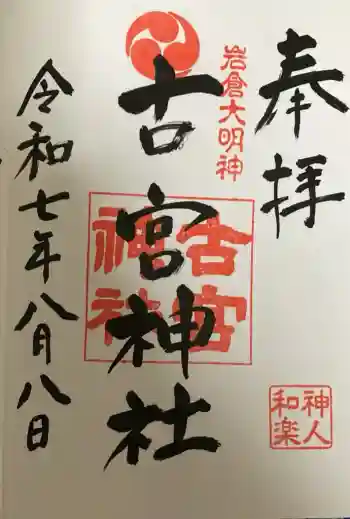 奉拝
岩倉大明神
古宮神社
古宮
神社
令和七年八月八日
神人
和楽